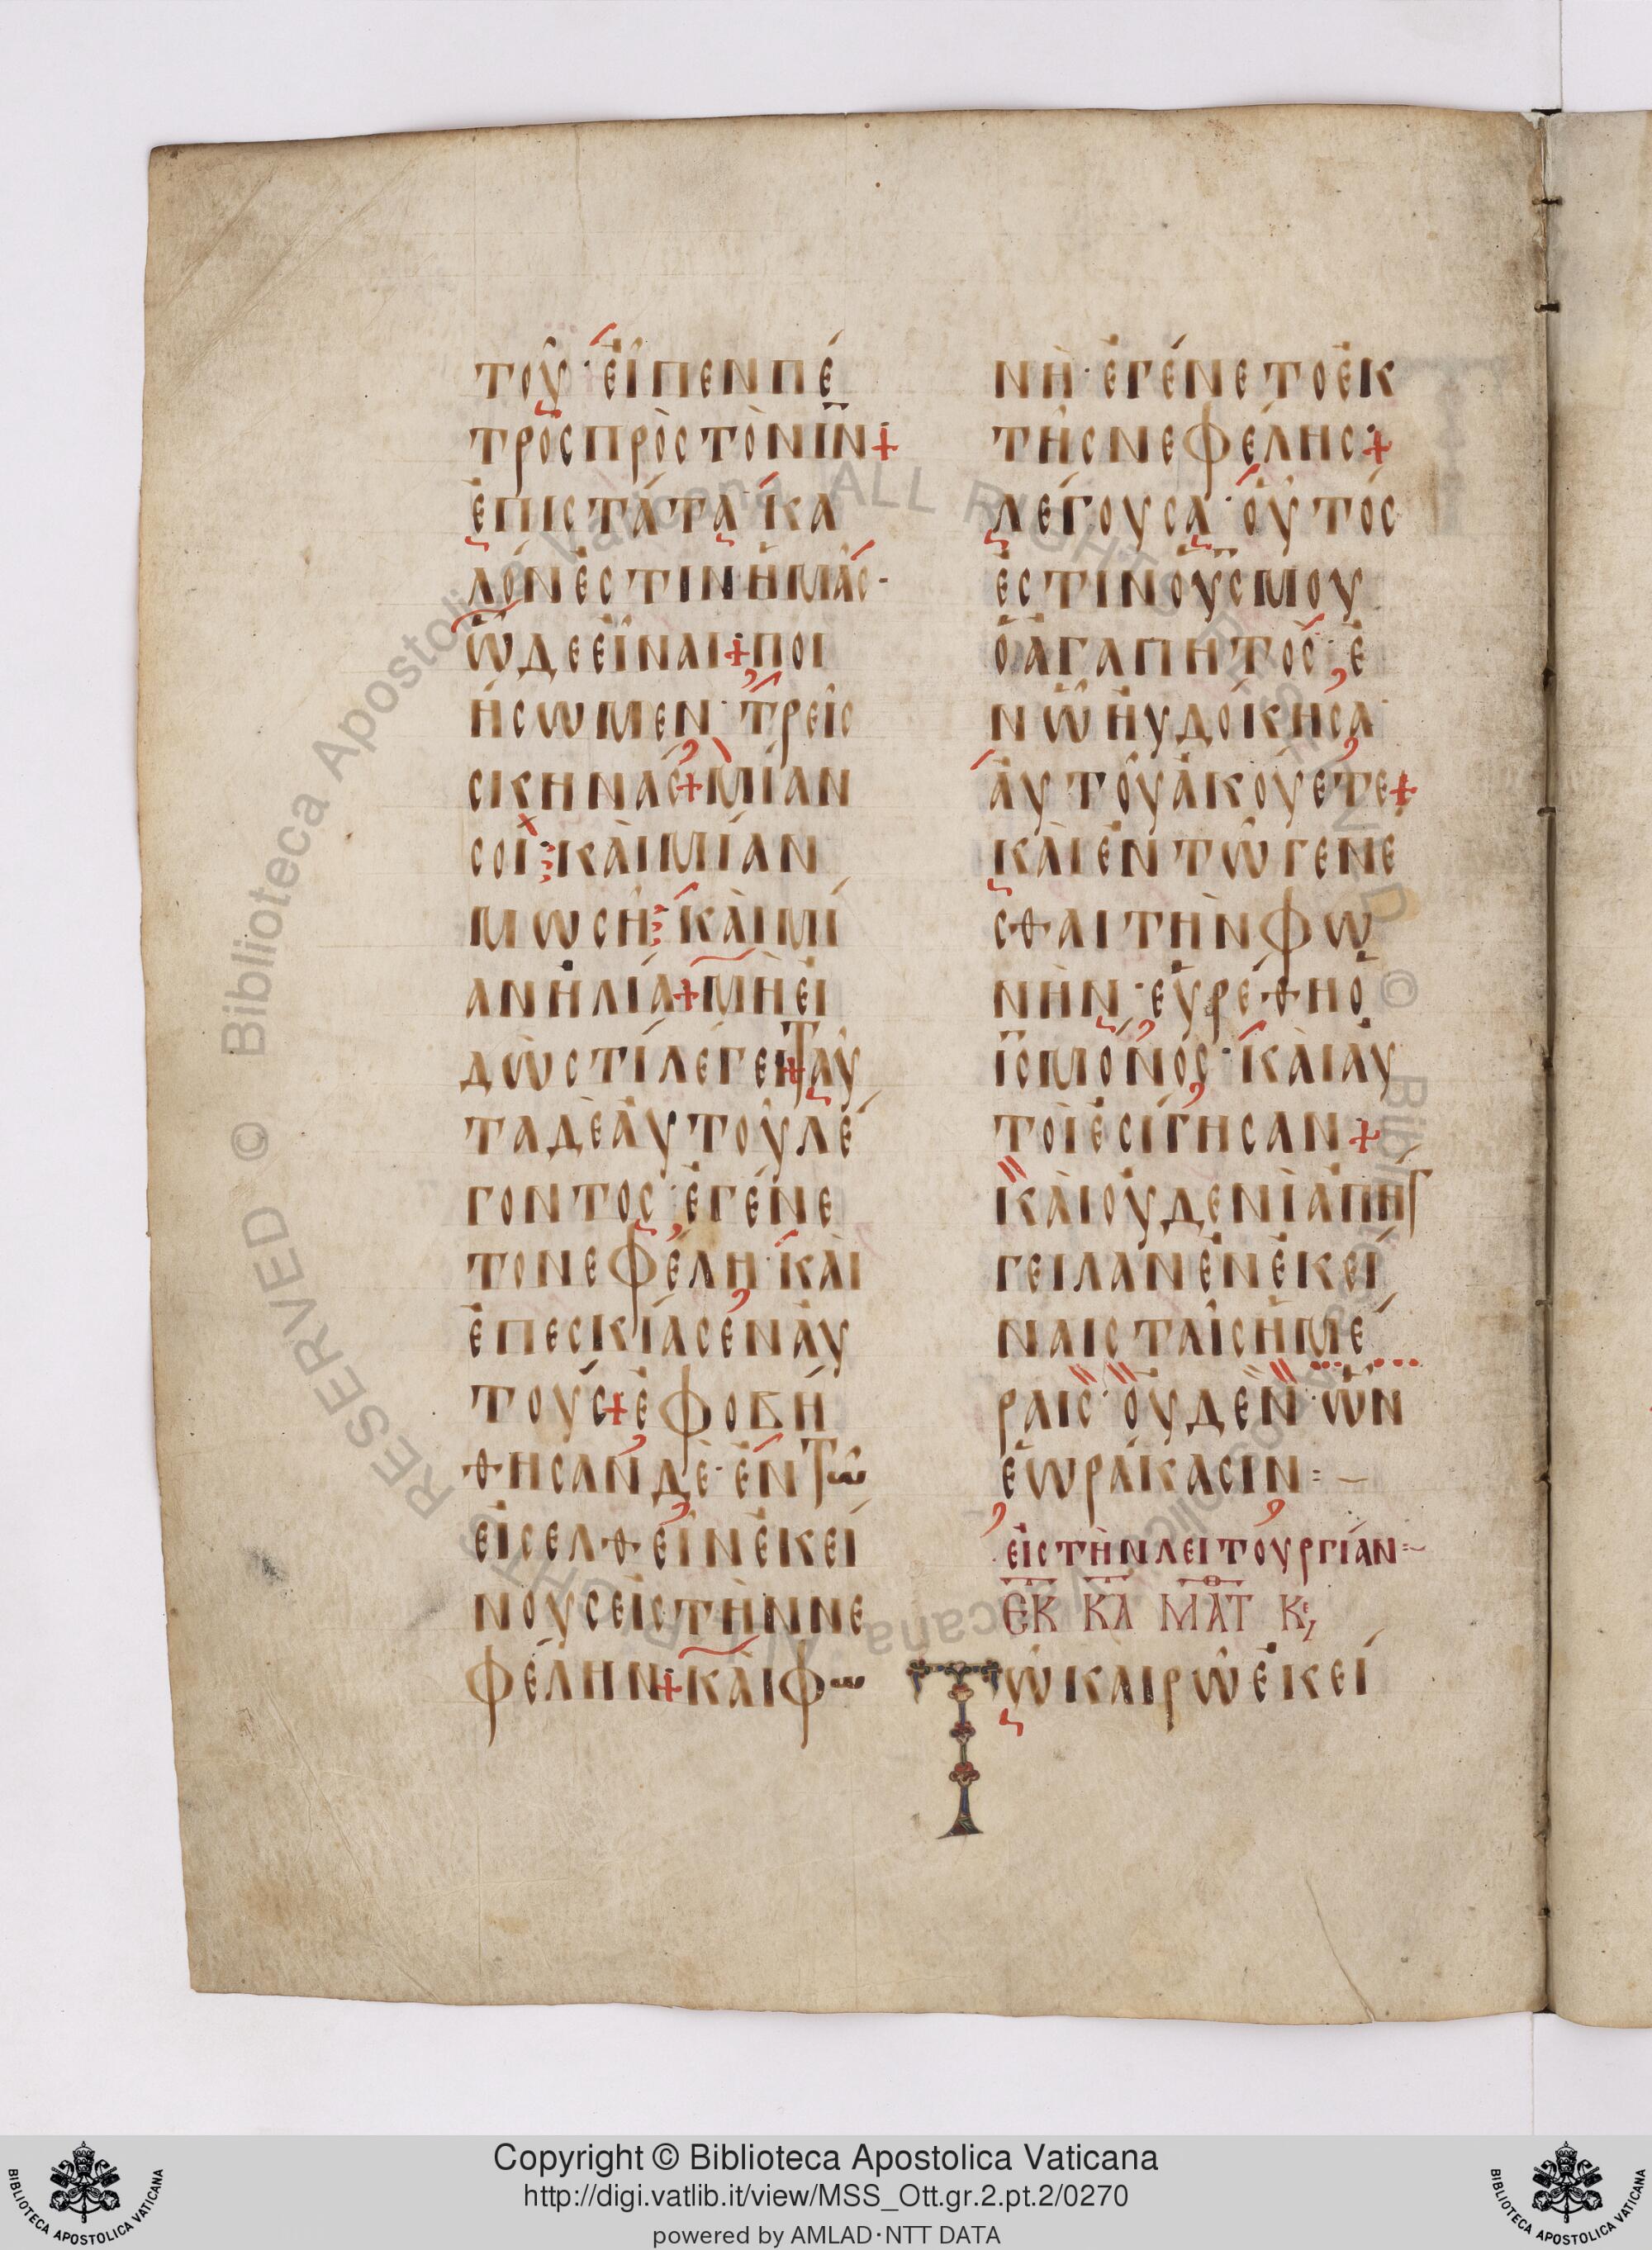 τοῦ· εἶπεν πέ
τρος πρὸς τὸν ιν+
ἐπιστάτα· κα
λόν ἐστιν ἡμᾶς
ὧδε εἶναι+ ποι
ήσωμεν· τρεῖς
σκηνάς+ μίαν
σοί· καὶ μίαν
μωσῆ· καὶ μί
αν ἠλία+ μὴ εἰ
δὼς τί λέγει+ ταῦ
τα δὲ αὐτοῦ λέ
γοντος· ἐγένε
το νεφέλη· καὶ
ἐπεσκίασεν αὐ
τούς+ ἐφοβή
θησαν δὲ· ἐν τῶ
εἰσελθεῖν ἐκεί
νους εἰς τὴν νε
φέλην+ καὶ φω
νὴ· ἐγένετο ἐκ
τῆς νεφέλης+
λέγουσα· οὗτός
ἐστιν ὁ υς μου
ὁ ἀγαπητός· ἐ
ν ὧ ηὐδόκησα·
αὐτοῦ ἀκούετε+
καὶ ἐν τῶ γενέ
σθαι τὴν φω
νὴν· εὑρέθη ὁ
ις μόνος· καὶ αὐ
τοὶ ἐσίγησαν+
καὶ οὐδενὶ ἀπήγ
γειλαν ἐν ἐκεί
ναις ταῖς ἡμέ
ραις· οὐδὲν· ὧν
ἑωράκασιν:-
εἰς τὴν λειτουργίαν:-
ΕΚ ΚΑ ΜΑΤ ΚΕ,
Τῶ καιρῶ ἐκεί
Copyright © Biblioteca Apostolica Vaticana
http://digi.vatlib.it/view/MSS_Ott.gr.2.pt.2/0270
powered by AMLAD·NTT DATA
BIBLIOTECA APOSTOLICA VATICANA
BIBLIOTECA APOSTOLICA VATICANA
© Biblioteca Apostolica Vaticana ALL RIGHTS RESERVED © Biblioteca Apostolica Vaticana ALL RIGHTS RESERVED